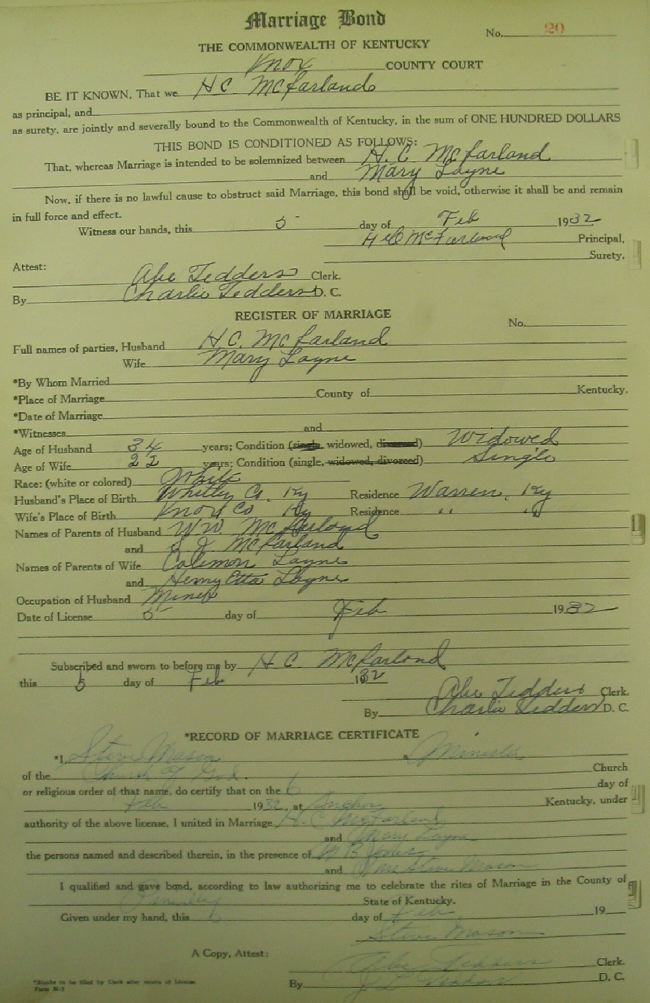 Marriage Bond
No. 20
THE COMMONWEALTH OF KENTUCKY
Knox COUNTY COURT
BE IT KNOWN, That we H C McFarland
as principal, and
as surety, are jointly and severally bound to the Commonwealth of Kentucky, in the sum of ONE HUNDRED DOLLARS
THIS BOND IS CONDITIONED AS FOLLOWS:
That, whereas Marriage is intended to be solemnized between H. C McFarland
and Mary Layne
Now, if there is no lawful cause to obstruct said Marriage, this bond shall be void, otherwise it shall be and remain
in full force and effect.
Witness our hands, this 5 day of Feb 1932
H C McFarland Principal,
Surety.
Attest:
Abe Tedders Clerk.
By Charlie Tedders D. C.
REGISTER OF MARRIAGE
No.
Full names of parties, Husband H C. McFarland
Wife Mary Layne
*By Whom Married
*Place of Marriage County of Kentucky.
*Date of Marriage
*Witnesses and
Age of Husband 34 years; Condition (single, widowed, divorced) Widowed
Age of Wife 22 years; Condition (single, widowed, divorced) Single
Race: (white or colored) White
Husband's Place of Birth Whitley Co. Ky Residence Warren, Ky
Wife's Place of Birth Knox Co Ky Residence " "
Names of Parents of Husband WW McFarland
and J. McFarland
Names of Parents of Wife Colemon Layne
and Henry Etta Layne
Occupation of Husband Miner
Date of License 5 day of Feb 1932
Subscribed and sworn to before me by H C McFarland
this 5 day of Feb 1932
Abe Tedders Clerk.
By Charlie Tedders D. C.
*RECORD OF MARRIAGE CERTIFICATE
*I, Steve Mason * Minister
of the Church of God Church
or religious order of that name, do certify that on the 6 day of
Feb 1932 at Kentucky, under
authority of the above license, I united in Marriage H. C McFarland
and Mary Layne
the persons named and described therein, in the presence of
and Mrs Steve Mason
I qualified and gave bond, according to law authorizing me to celebrate the rites of Marriage in the County of
State of Kentucky.
Given under my hand, this 6 day of Feb 19
Steve Mason
A Copy, Attest:
Abe Tedders Clerk.
By D. C.
*Blanks to be filled by Clerk after return of License.
Form M-3